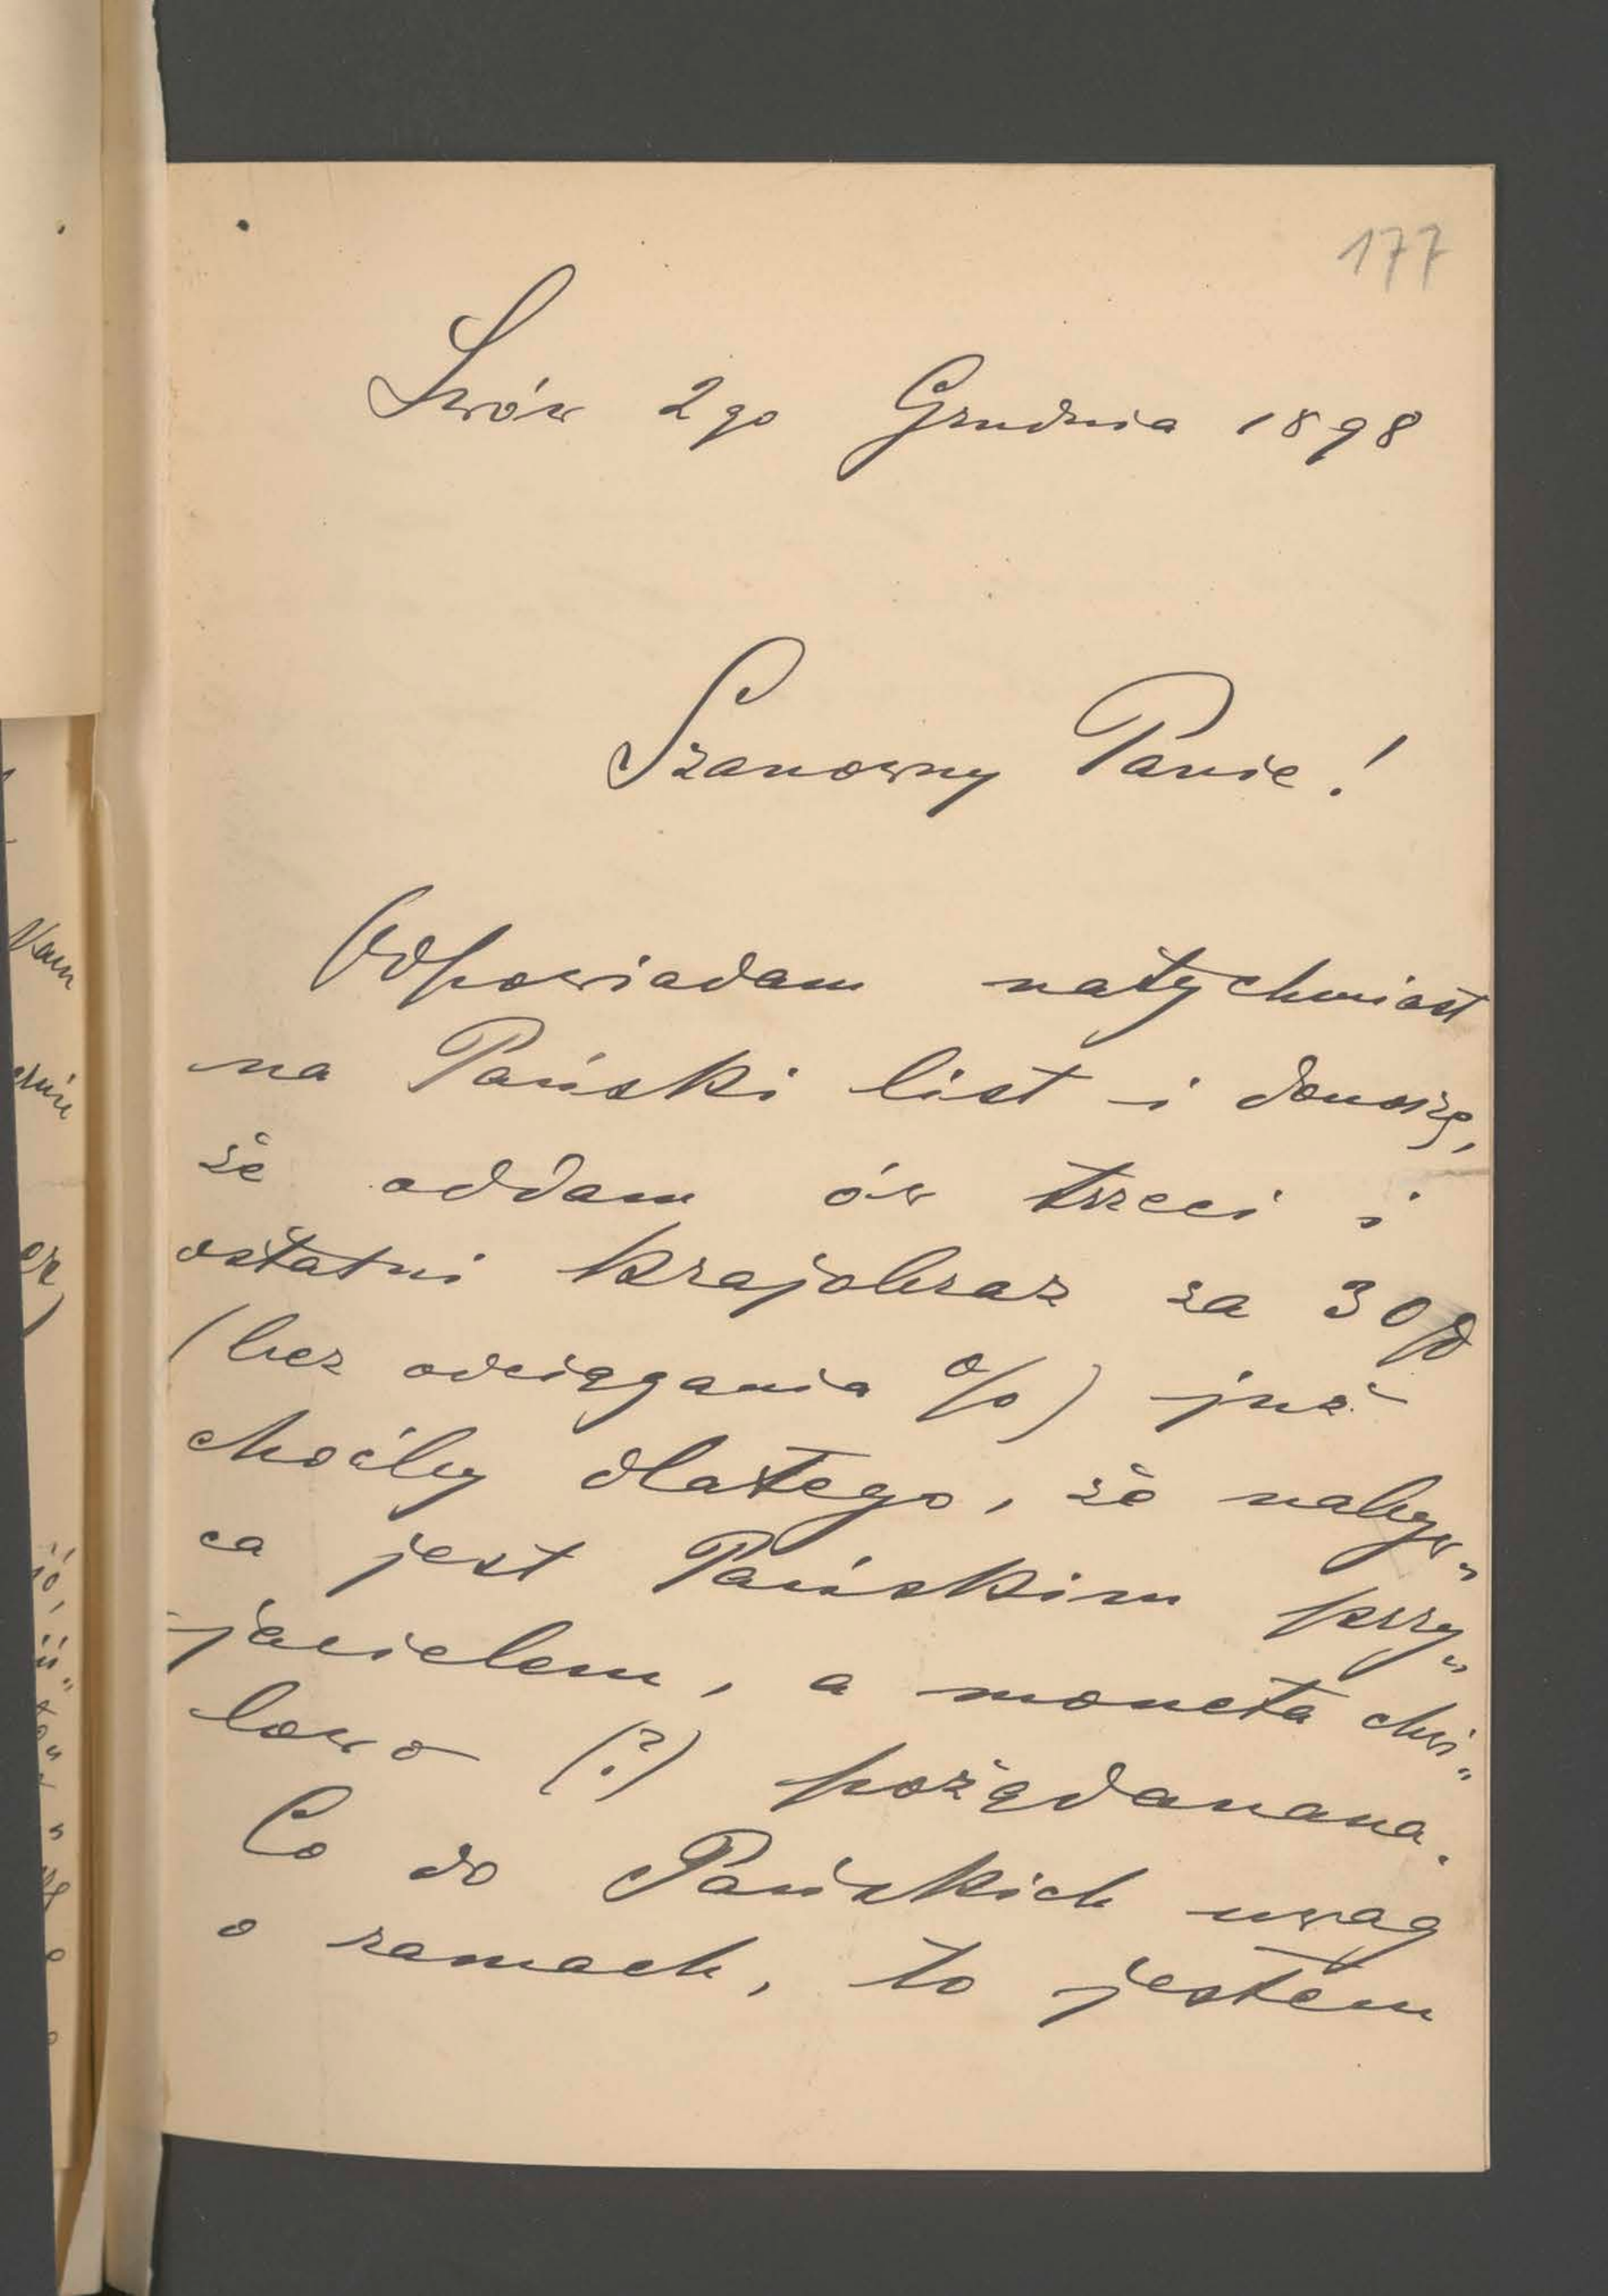 177
Lwów 2go Grudnia 1898
Szanowny Panie!
Odpowiadam natychmiast
na Pański list i donoszę,
że oddam ów trzeci i
ostatni krajobraz za 30
(bez odciągania %) już
choćby dlatego, że nabyw„
ca jest Pańskim przy„
„jacielem, a moneta chwi„
lowo (?) pożądanana.
Co do Pańskich uwag
o ramach, to jestem